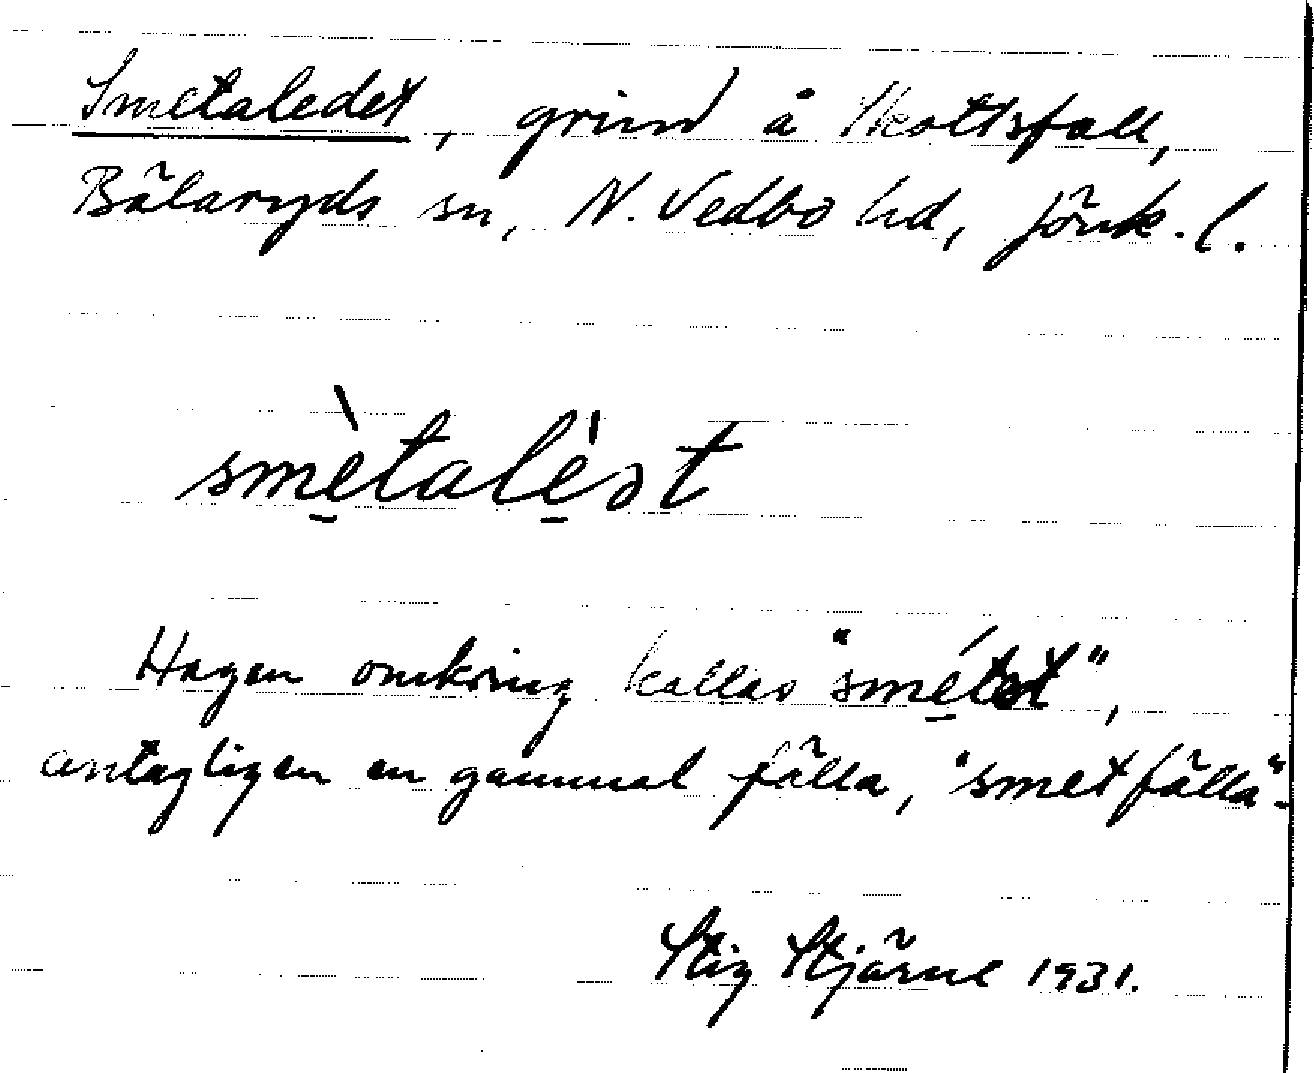 Smetaledet, grind å Skottsfall,
Bälaryds sn, N. Vedbo hd, Jönk. l.
smè̱talè̱ət
Hagen omkring kallas "smé̱tət",
antagligen en gammal fålla, "smetfålla".
Stig Stjärne 1931.